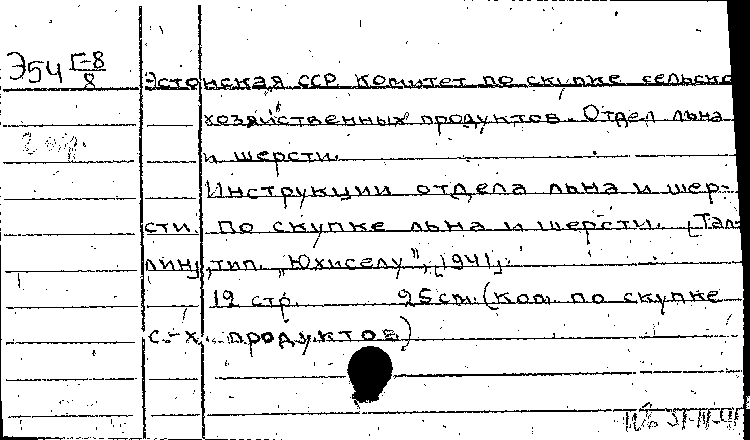 Э54 Г-8/8
Эстонская ССР Комитет по скупке сельско
хозяйственных продуктов. Отдел льна
и шерсти.
Инструкции отдела льна и шер-
сти по скупке льна и шерсти. [Тал-
лин], тип. „Юхиселу", [1941].
12 стр. 25 см. (Ком. по скупке
с.-х. продуктов)